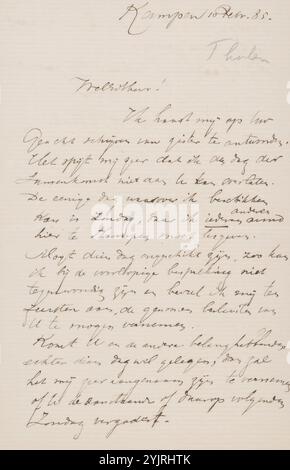 Kampen 10 Febr. 85.
Tholen
Weledheer!
Ik haast mij op Uw
geacht schrijven van gister te antwoorden.
Het spijt mij zeer dat ik den dag der
te kan overlaten.
De eenige dag waarover ik beschikken
kan is Zondag, daar ik iederen anderen avond
hier te Kampen moet lesgeven.
Mogt dien dag ongeschikt zijn, zoo kan
ik bij de voorloopige bespreking niet
tegenwoordig zijn en beveel ik mij ten
zeersten aan, de genomen besluiten van
U te mogen vernemen.
Komt U en de andere belanghebbenden
echter dien dag wel gelegen, dan zal
het mij zeer aangenaam zijn te vernemen
of U de aanstaande of daarop volgende
Zondag vergadert.
alamy
Image ID: 2YJRHTK
www.alamy.com